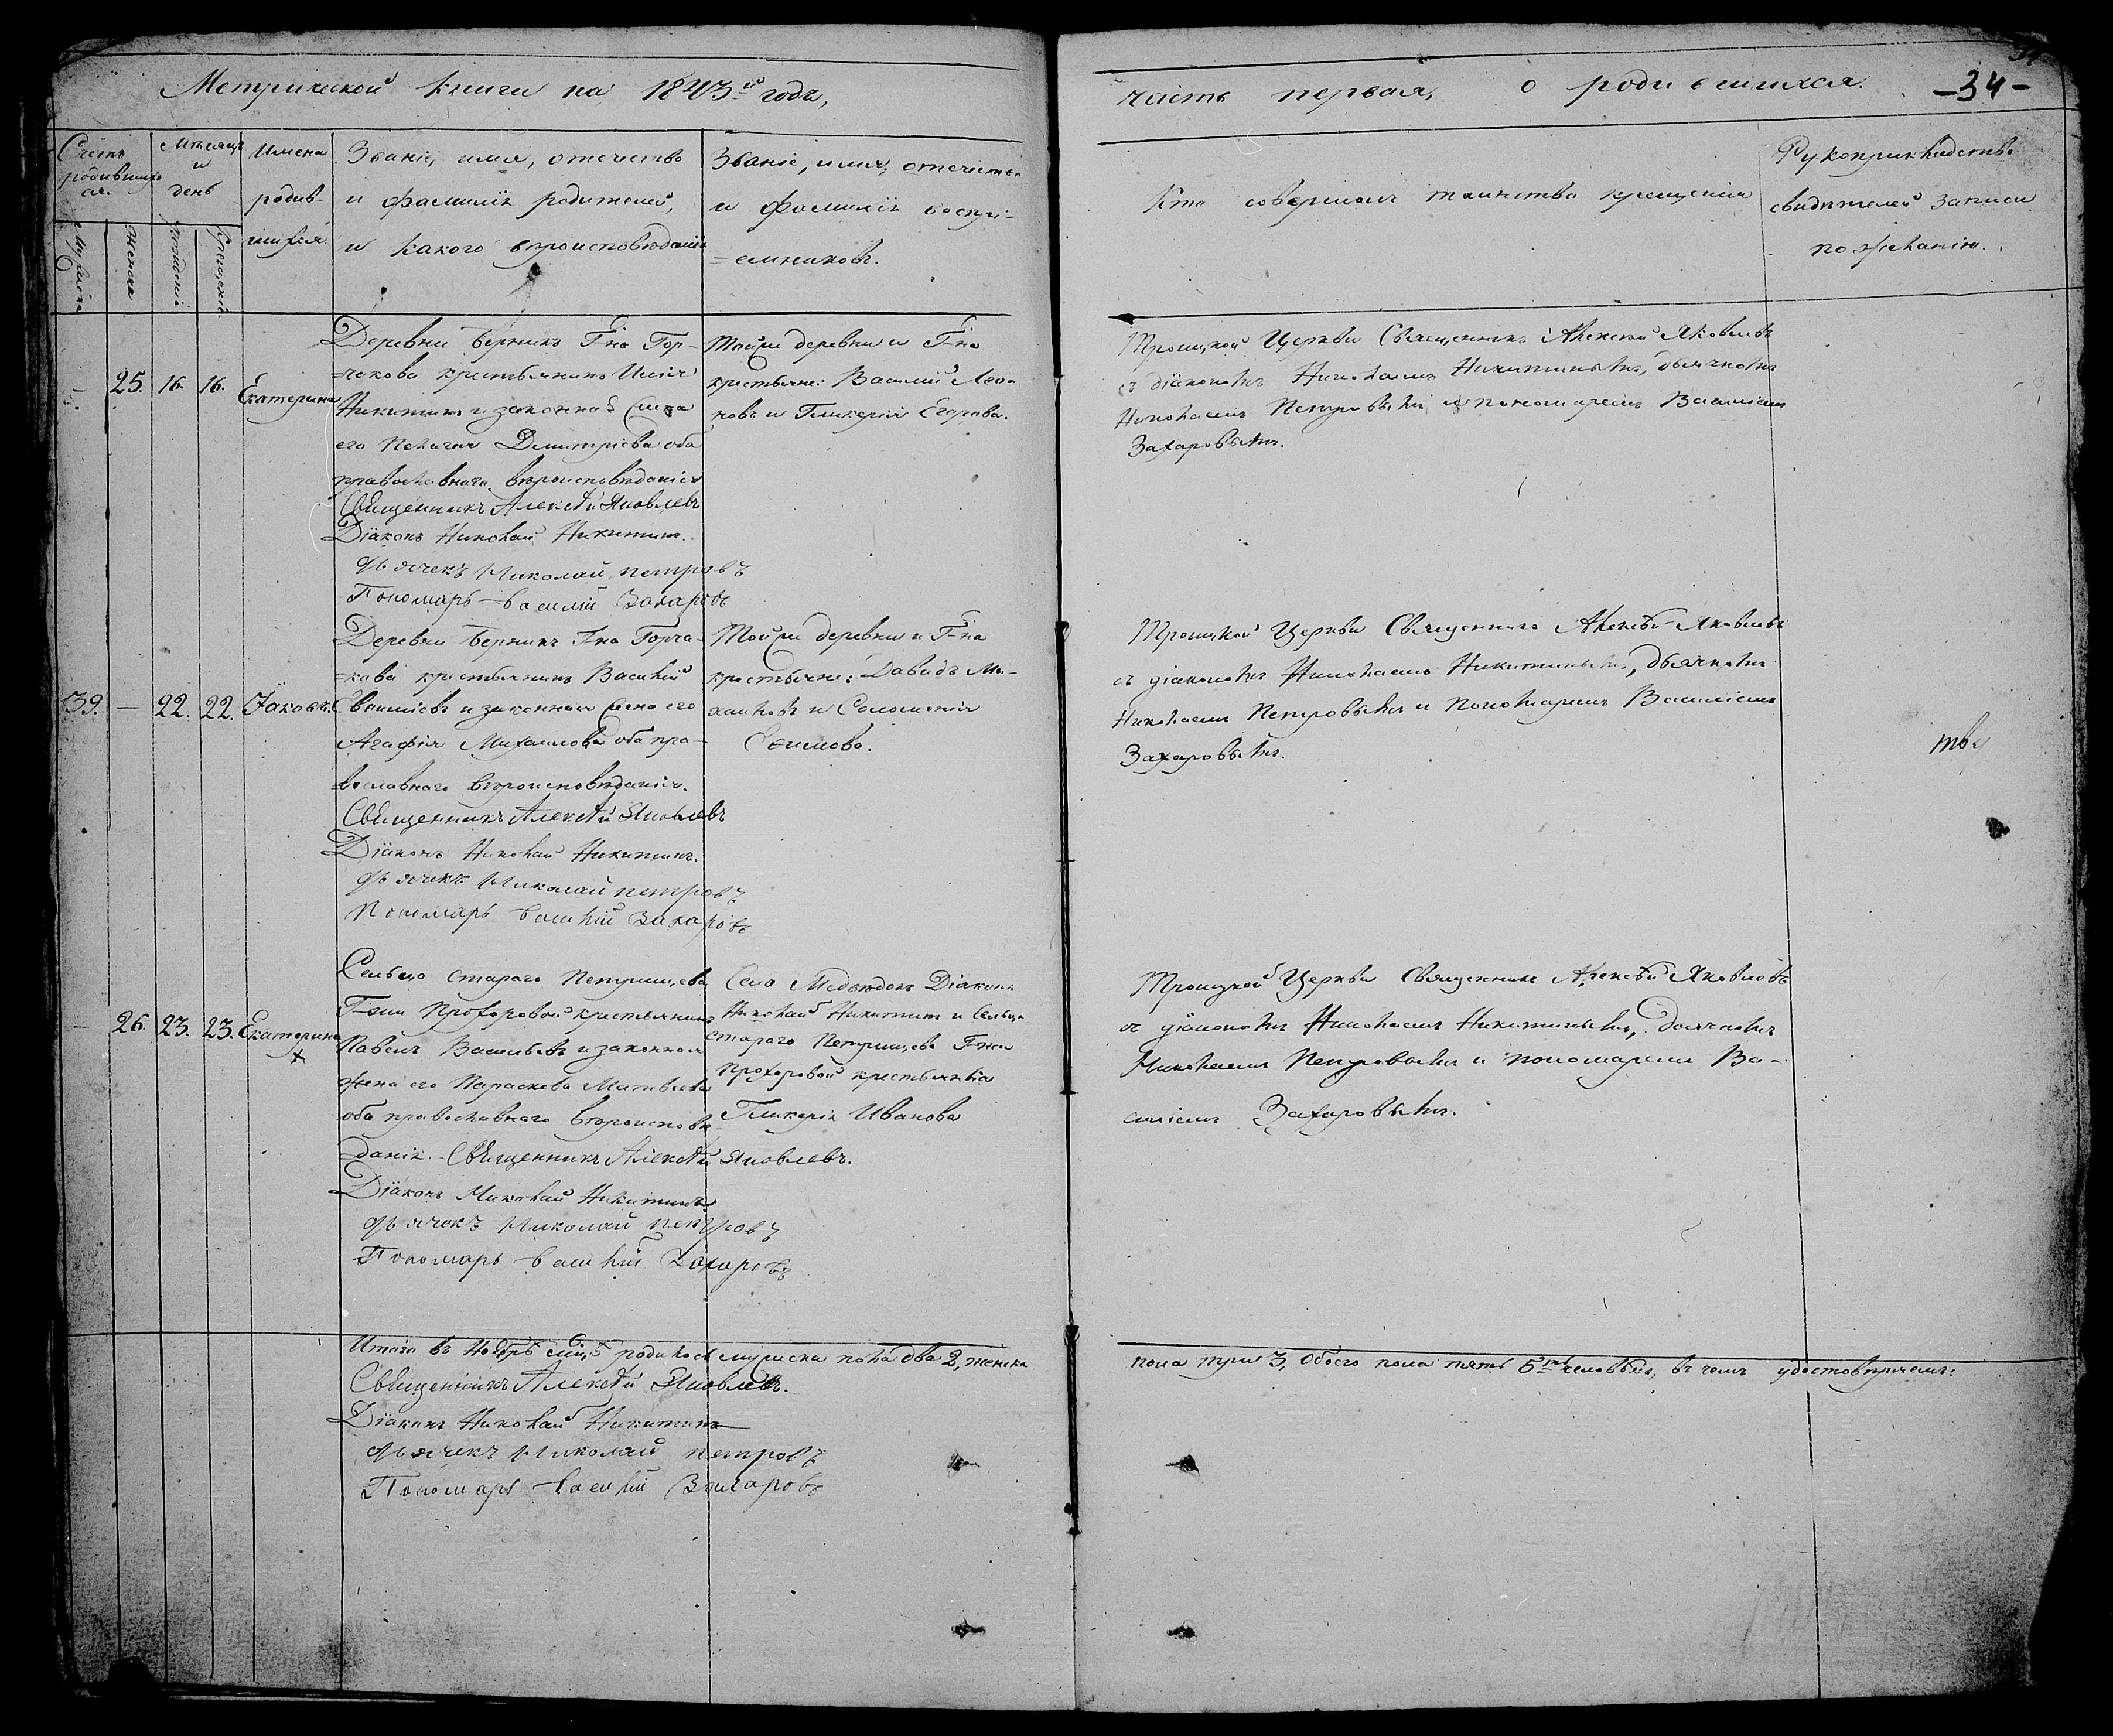 Метрической книги на 1843й годъ,
Счетъ родившихся.
Мѣсяцъ и день
Имена родив-
шихся.
Званіе, имя, отечество
и фамилія родителей,
и какого вѣроисповѣданія
Званіе, имя, отечество
и фамилія воспрі-
=емниковъ.
Мужеска
Женска
Рожденія
Крещенія.
25. 16. 16. Екатерина
Деревни Берникъ Г-на Гор-
=чакова крестьянинъ Илія
Никитинъ и законная Жена
его Пелагія Димитріева оба
православнаго вѣроисповѣданія
Священникъ Алексѣй Яковлевъ
Діаконъ Николай Никитинъ.
Дьячекъ Николай Петровъ
Пономарь Василій Захаровъ
Той же деревни и Г-на
крестьяне: Василій Лео-
новъ и Гликерія Егорова.
39. — 22. 22. Іаковъ.
Деревни Берникъ Г-на Горча-
=кова крестьянинъ Василій
и законная Жена его
Агафія Михаилова оба пра-
вославнаго вѣроисповѣданія.
Священникъ Алексѣй Яковлевъ
Діаконъ Николай Никитинъ.
Дьячекъ Николай Петровъ
Пономарь Василій Захаровъ
Той же деревни и Г-на
крестьяне: Давидъ Ми-
хаиловъ и Соломонія
Ефимова.
26. 23. 23. Екатерина
Сельца Стараго Петрищева
Г-жи Прохоровой крестьянинъ
Павелъ Васильевъ и законная
жена его Параскева Матвѣева
оба православнаго вѣроисповѣ-
=данія. Священникъ Алексѣй Яковлевъ.
Діаконъ Николай Никитинъ
Дьячекъ Николай Петровъ
Пономарь Василій Захаровъ
Села Медвѣдокъ Діаконъ
Николай Никитинъ и Сельца
Стараго Петрищева Г-жи
Прохоровой крестьянка
Гликерія Иванова
Итого въ Ноябрѣ мцѣ родилось мужеска пола два 2, женска
Священникъ Алексѣй Яковлевъ.
Діаконъ Николай Никитинъ
Дьячекъ Николай Петровъ
Пономарь Василій Захаровъ
часть первая, о родившихся.
-34-
Кто совершалъ таинство крещенія
Рукоприкладство
свидѣтелей записи
по желанію.
Троицкой Церкви Священникъ Алексѣй Яковлевъ
съ діакономъ Николаемъ Никитинымъ, дьячкомъ
Николаемъ Петровымъ и пономаремъ Василіемъ
Захаровымъ.
Троицкой Церкви Священникъ Алексѣй Яковлевъ
съ діакономъ Николаемъ Никитинымъ, дьячкомъ
Николаемъ Петровымъ и пономаремъ Василіемъ
Захаровымъ.
тву
Троицкой Церкви Священникъ Алексѣй Яковлевъ
съ діакономъ Николаемъ Никитинымъ, дьячкомъ
Николаемъ Петровымъ и пономаремъ Ва-
силіемъ Захаровымъ.
пола три 3, обоего пола пять 5ть человѣкъ, въ чемъ удостовѣряемъ: